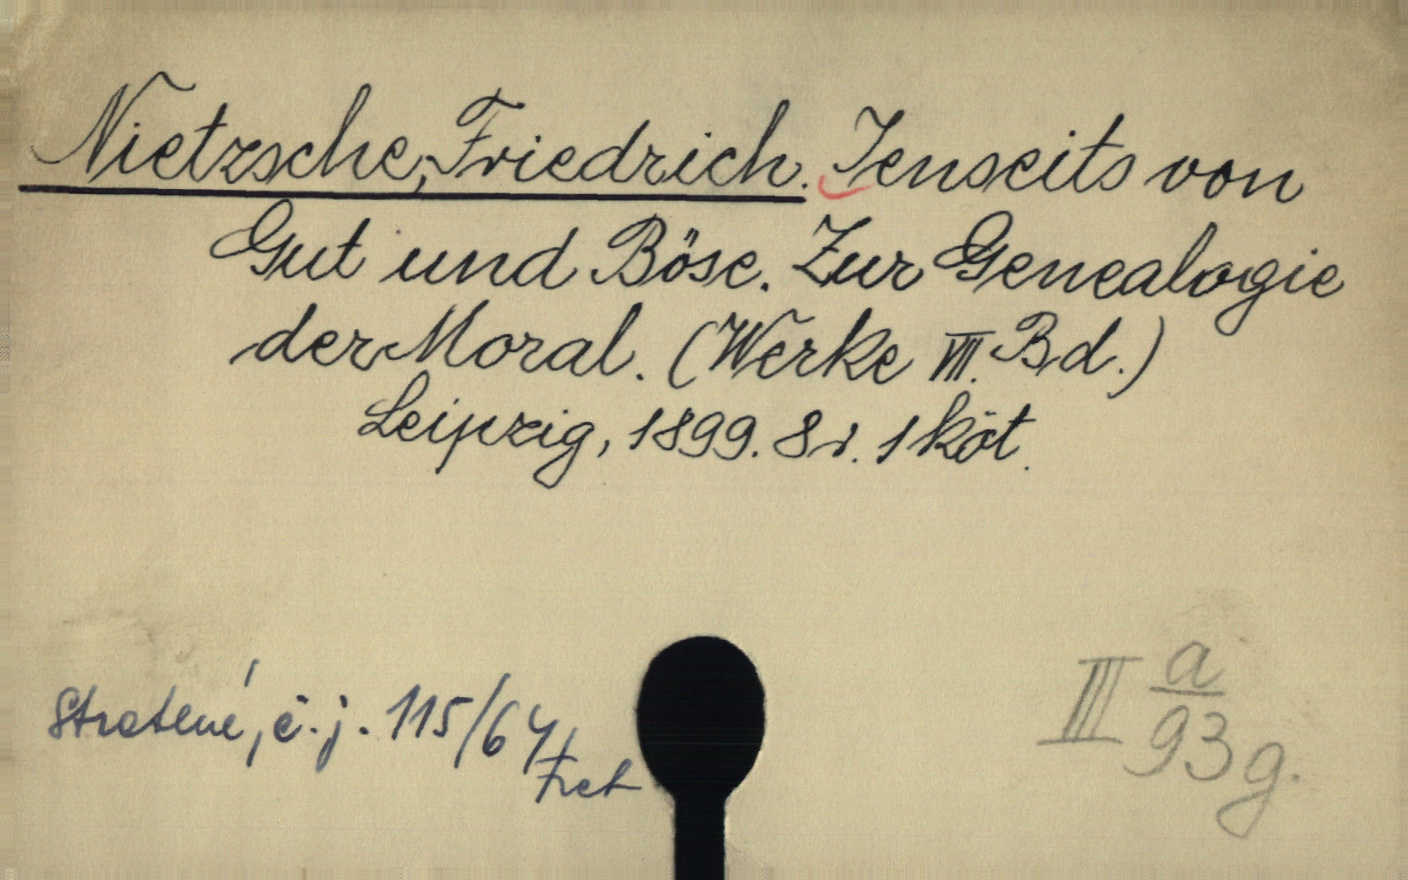 Nietzsche, Friedrich. Jenseits von
Gut und Böse. Zur Genealogie
der Moral. (Werke VII. Bd.)
Leipzig, 1899. 8r. 1 köt.
Stratené, č.j. 115/64
III a/93 g.